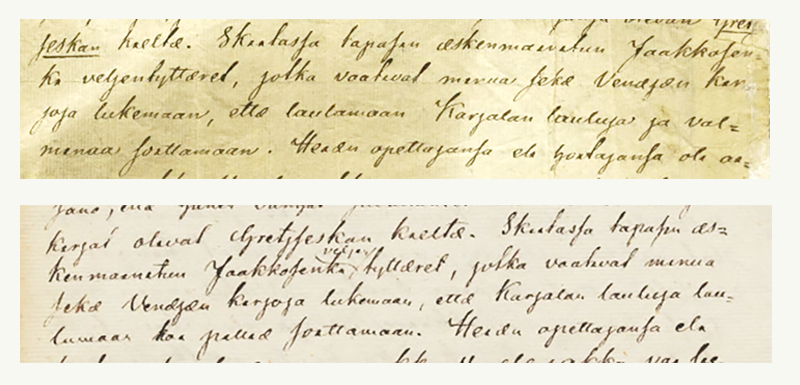 olevan Gret
jeskan kieltæ. Skiitassa tapasin æskenmainitun Jaakkosen-
ki veljentyttæret, jotka vaativat minua sekæ Venæjæn kir-
joja lukemaan, ettæ laulamaan Karjalan lauluja ja val-
minaa soittamaan. Heidæn opettajansa eli hoitajansa oli
kirjat olevat Gretsjeskan kieltæ. Skiitassa tapasin æs=
kenmainitun Jaakkosenki veljen tyttæret, jotka vaativat minua
sekæ Venæjæn kirjoja lukemaan, ettæ Karjalan lauluja lau=
lumaan soittamaan. Heidæn opettajansa eli